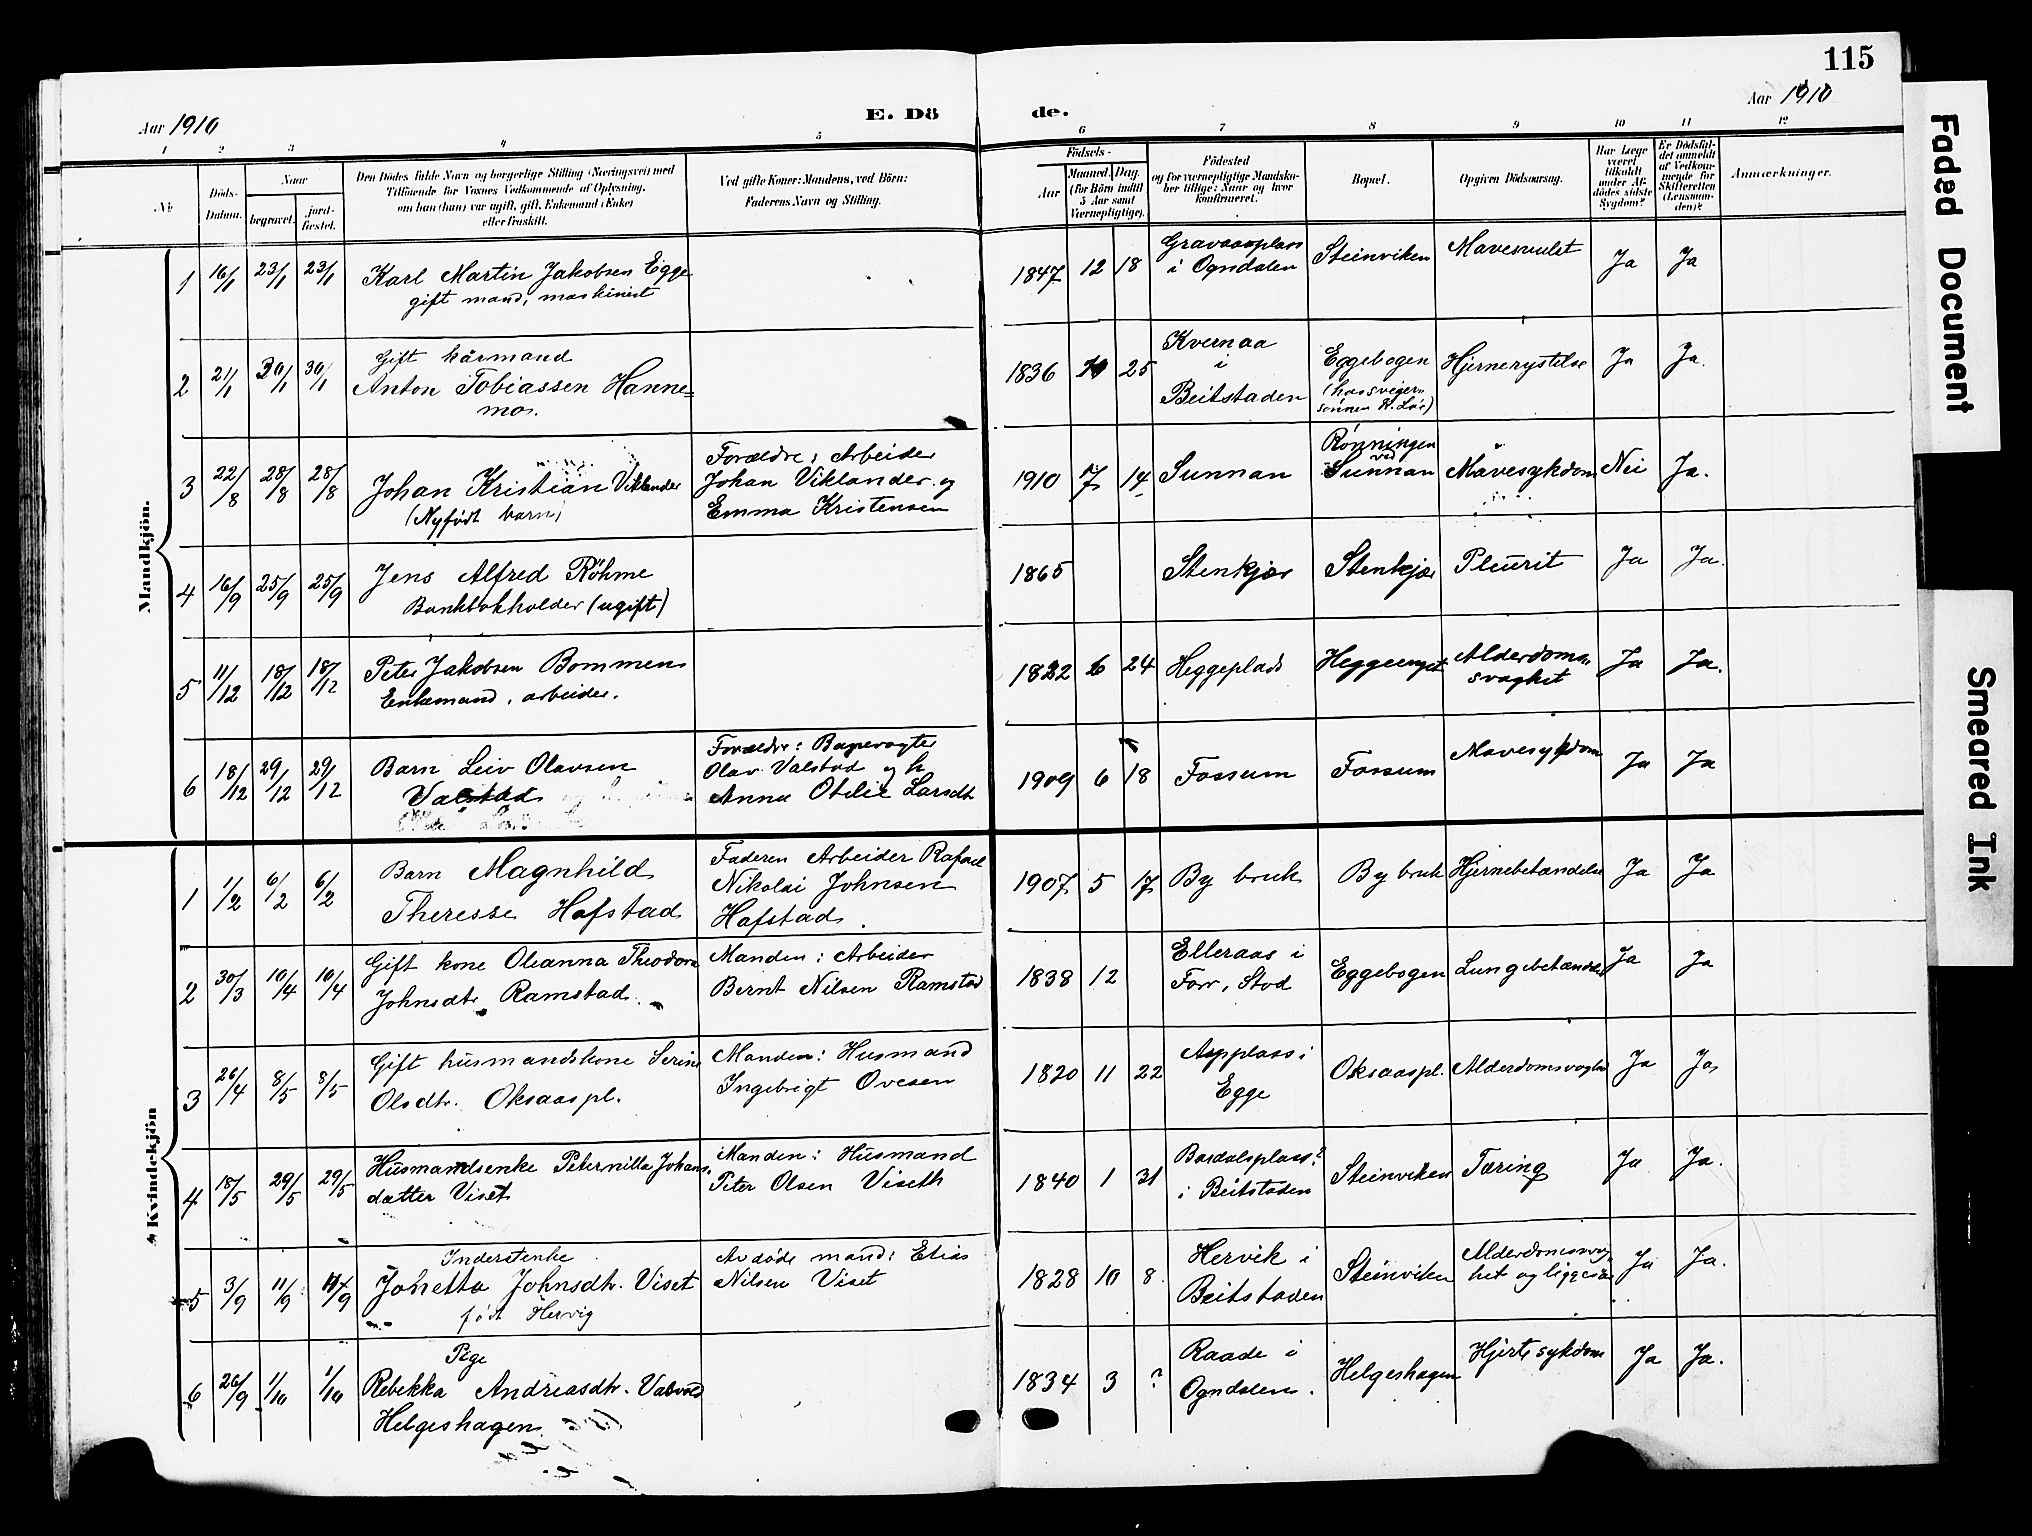 115
Aar 1910
E. Dö
de.
Aar 1910
1 2 3 4 5 6 7 8 9 10 11 12
№
Döds-
Datum.
Naar
begravet.
jord-
fæstet.
Den Dödes fulde Navn og borgerlige Stilling (Næringsvei) med
Tilföiende for Voxnes Vedkommende af Oplysning,
om han (hun) var ugift, gift, Enkemand (Enke)
eller fraskilt.
Ved gifte Koner: Mandens, ved Börn:
Faderens Navn og Stilling.
Födsels-
Aar
Maaned. Dag.
(for Börn indtil
5 Aar samt
Værnepligtige).
Födested
og for værnepligtige Mandska-
ber tillige: Naar og hvor
konfirmeret.
Bopæl.
Opgiven Dödsaarsag.
Har Læge
været
tilkaldt
under Af-
dödes sidste
Sygdom?
Er Dödsfal-
det anmeldt
af Vedkom-
mende for
Skifteretten
(Lensman-
den)?
Anmærkninger.
Mandkjön.
1 16/1 23/1 23/1 Karl Martin Jakobsen Egge
gift mand, maskinist
1847 12 18 Gravaasplass
i Ogndalen
Steinviken Mavesvulst Ja Ja
2 21/1 30/1 30/1 Gift kårmand
Anton Tobiassen Hanne=
mo.
1836 25 Kvernaa
i
Beitstaden
Eggebogen
(hos sviger-
sönnen
Hjernerystelse Ja Ja.
3 22/8 28/8 28/8 Johan Kristian Viklander
(Nyfødt barn)
Forældre: Arbeider
Johan Viklander og
Emma Kristensen
1910 7 14 Sunnan Rønningen
ved
Sunnan
Mavesykdom Nei Ja.
4 16/9 25/9 25/9 Jens Alfred Röhme
Bankbokholder (ugift)
1865 Stenkjær Stenkjær Pleurit Ja Ja.
5 11/12 18/12 18/12 Peter Jakobsen Bommen
Enkemand, arbeider.
1822 6 24 Heggeplads Heggeenget Alderdoms-
svaghet
Ja Ja.
6 18/12 29/12 29/12 Barn Leiv Olavsen
Valstad
Forældre: Banevogter
Olav Valstad og h
Anna Otelie Larsdt
1909 6 18 Fossum Fossum Mavesykdom Ja Ja
Kvindekjön
1 1/2 6/2 6/2 Barn Magnhild
Theresse Hafstad
Faderen Arbeider Rafael
Nikolai Johnsen
Hafstad.
1907 5 17 By bruk By bruk Hjernebetændelse Ja Ja
2 30/3 10/4 10/4 Gift kone Oleanna Theodora
Johnsdtr Ramstad.
Manden: Arbeider
Bernt Nilsen Ramstad
1838 12 Elleraas i
For, Stod
Eggebogen Lungebetændelse Ja Ja
3 26/4 8/5 8/5 Gift husmandskone Serine
Olsdtr. Oksaaspl.
Manden: Husmand
Ingebrigt Ovesen
1820 11 22 Aspplass i
Egge
Oksaaspl. Alderdomsvaghet Ja Ja
4 18/5 29/5 29/5 Husmandsenke Peternilla Johans-
datter Viset
Manden: Husmand
Peter Olsen Viseth
1840 1 31 Bardalsplass?
i Beitstaden
Steinviken Tæring Ja Ja.
5 3/9 11/9 11/9 Inderstenke
Johetta Johnsdtr. Viset
født Hervig
Avdøde mand: Elias
Nilsen Viset
1828 10 8. Hervik i
Beitstaden
Steinviken Alderdomssvag-
het og liggesaar
Ja Ja.
6 26/9 1/10 1/10 Pige
Rebekka Andreasdtr. Valvold
Helgeshagen
1834 3 ? Raade i
Ogndalen.
Helgeshagen Hjertesykdom Ja Ja.
Faded Document
Smeared Ink